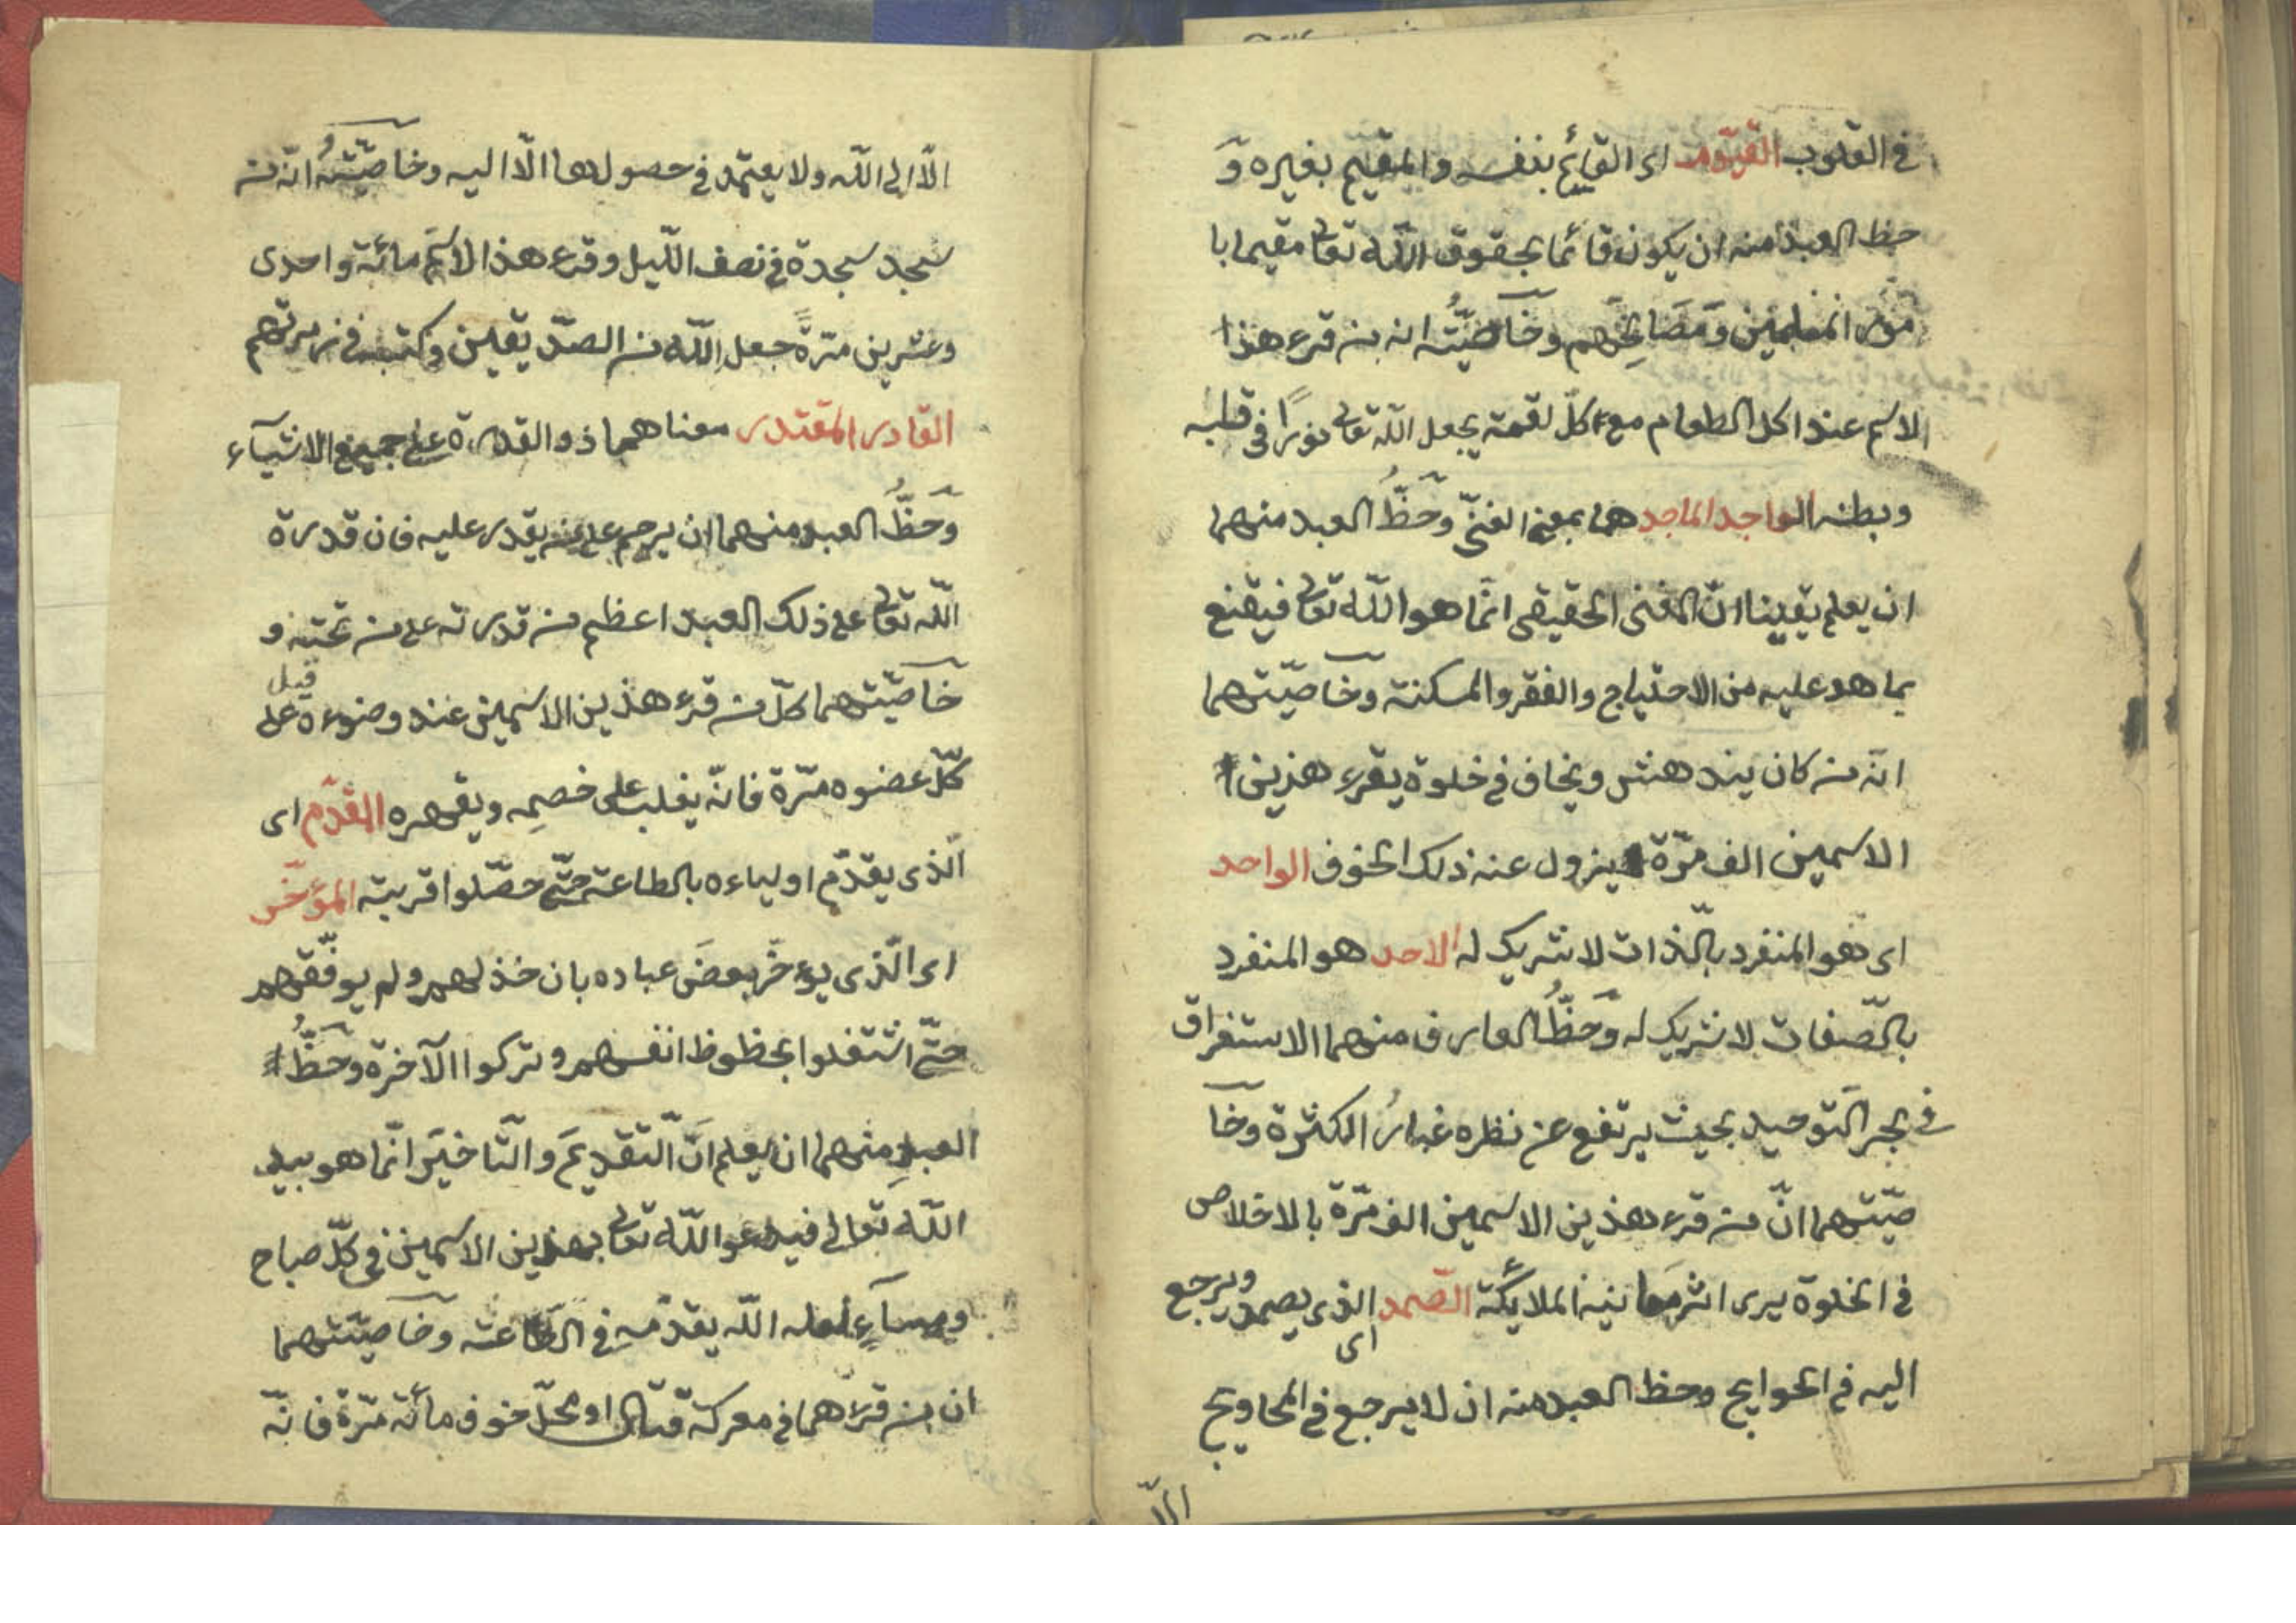 في القلوب القيّوم اى القائم بنفسه والمقيم بغيره وَ
حظ العبد منه ان يكون قائما بحقوق اللّه تعالى مقيما با
مور المسلمين وَمَصَالِحَهم وخَاصّيّتُه انه من قرء هذا
الاسم عند اكل الطعام مع كلّ لقمة يجعل اللّه تعالى نورًا فى قلبه
وبطنه الواجد الماجد هما بمعنى الغنىّ وحَظُّ العبد منهما
ان يعلم يقينا انّ المغنى الحقيقى انّما هو اللّه تعالى فيقنع
بما هو عليه من الاحتياج والفقر والمسكنة وخاصّيّتهما
انّه من كان يندهش ويخاف فى خلوة يقرء هذين
الاسمين الف مرّة يزول عنه ذلك الخوف الواحد
اى هو المنفرد بالّذات لا شريك له الاحد هو المنفرد
بالصّفات لا شريك له وَحَظُّ العارف منهما الاستغراق
فى بحر التّوحيد بحيث يرتفع عن نظره غبارُ الكثرة وخا
صّيّتهما انّ من قرء هذين الاسمين الف مرّة بالاخلاص
فى الخلوة يرى اثر معاينة الملائكة الصّمد اى الذى يصمد ويرجع
اليه فى الحوايج وحظ العبد منه ان لا يرجع فى المحاويج
الّا
الّا الى اللّه ولا يعتمد فى حصولها الّا اليه وخاصّيّتهُ انّه من
سجد سجدة فى نصف اللّيل وقرء هذا الاسم مائة واحدى
وعشرين مرّةً جعل اللّه من الصدّيقين وكتبه فى زمرتهم
القادر المقتدر معناهما ذو القدرة على جميع الاشيآء
وَحَظُّ العبد منهما ان يرحم على من يقدر عليه فان قدرة
اللّه تعالى على ذلك العبد اعظم من قدرته على من تحته و
خاصّيّتهما كلّ من قرء هذين الاسمين عند وضوءه قبل على
كلّ عضوه مرّة فانّه يغلب على خصمِه ويقهره المقدّم اى
الّذى يقدّم اولياءه بالطاعة حتّى حصّلوا قربته المؤخّر
اى الّذى يؤخّر بعضَ عباده بان خذلهم ولم يوفّقهم
حتّى اشتغلوا بحظوظ انفسهم وتركوا الآخرة وحَظُّ
العبدِ منهما ان يعلم انَّ التّقديمَ والتّاخيَر انّما هو بيد
اللّه تعالى فيدعو اللّه تعالى بهذين الاسمين فى كلّ صباح
ومسآءٍ لعله اللّه يقدّمه فى الطّاعة وخاصيّتهما
ان من قرءهما فى معركة قتال او محلّ خوف مائة مرّة فانّه